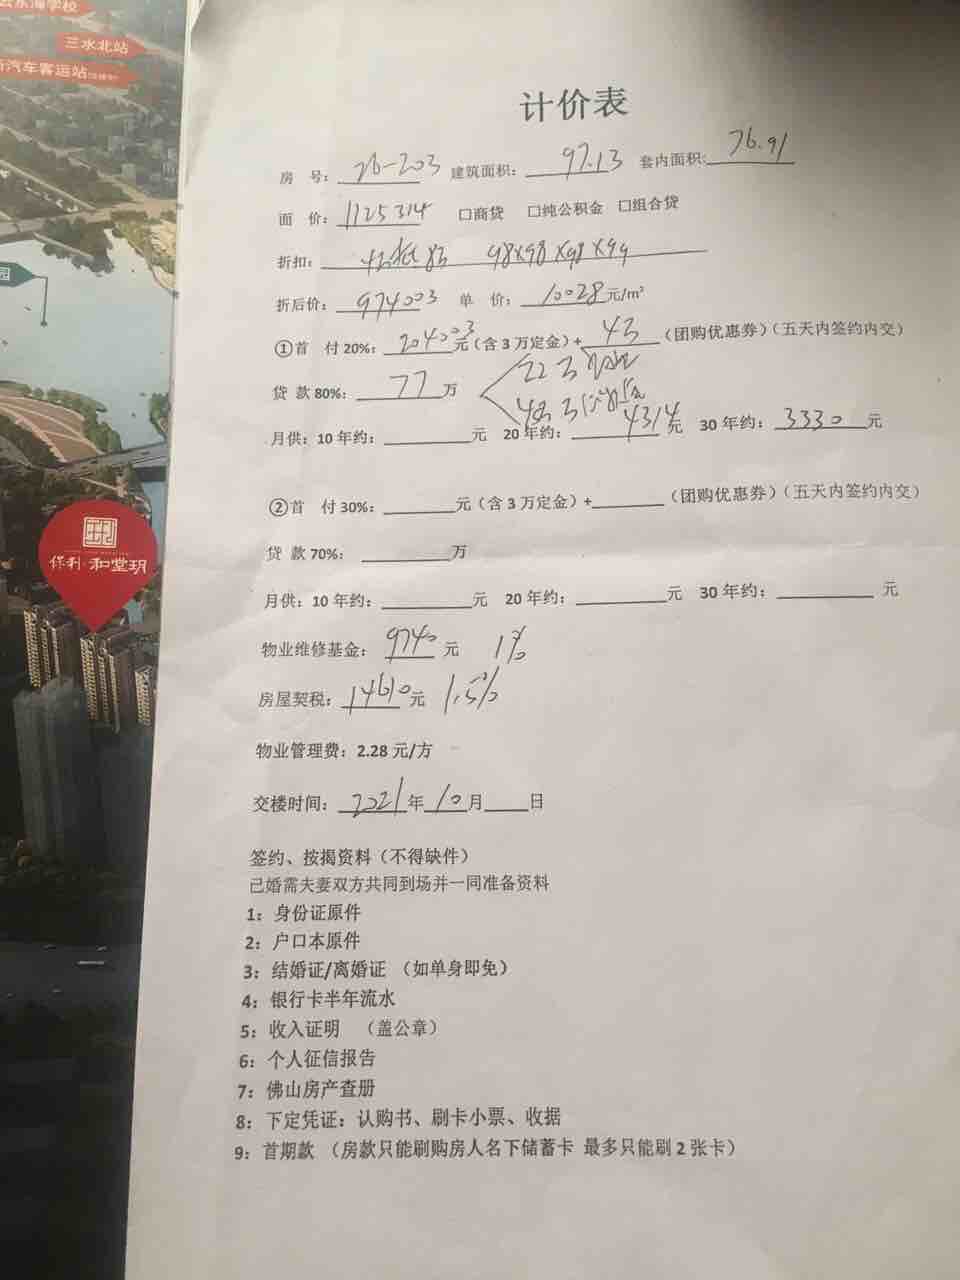 云东海学校
三水北站
汽车客运站
园
保利·和堂玥
计价表
房 号：26-203 建筑面积：97.13 套内面积：76.91
面 价：1125314 □商贷 □纯公积金 □组合贷
折扣： 98×98×98×99
折后价：974003 单 价：10028元/m²
①首 付20%：204003元（含3万定金）+4万（团购优惠券）（五天内签约内交）
贷 款80%：77万 22万
48万
月供：10年约：元 20年约：4314元 30年约：3330元
②首 付30%：元（含3万定金）+（团购优惠券）（五天内签约内交）
贷 款70%：万
月供：10年约：元 20年约：元 30年约：元
物业维修基金：9740元 1%
房屋契税：14610元 1.5%
物业管理费：2.28元/方
交楼时间：2021年10月日
签约、按揭资料（不得缺件）
已婚需夫妻双方共同到场并一同准备资料
1：身份证原件
2：户口本原件
3：结婚证/离婚证 （如单身即免）
4：银行卡半年流水
5：收入证明 （盖公章）
6：个人征信报告
7：佛山房产查册
8：下定凭证：认购书、刷卡小票、收据
9：首期款 （房款只能刷购房人名下储蓄卡 最多只能刷2张卡）